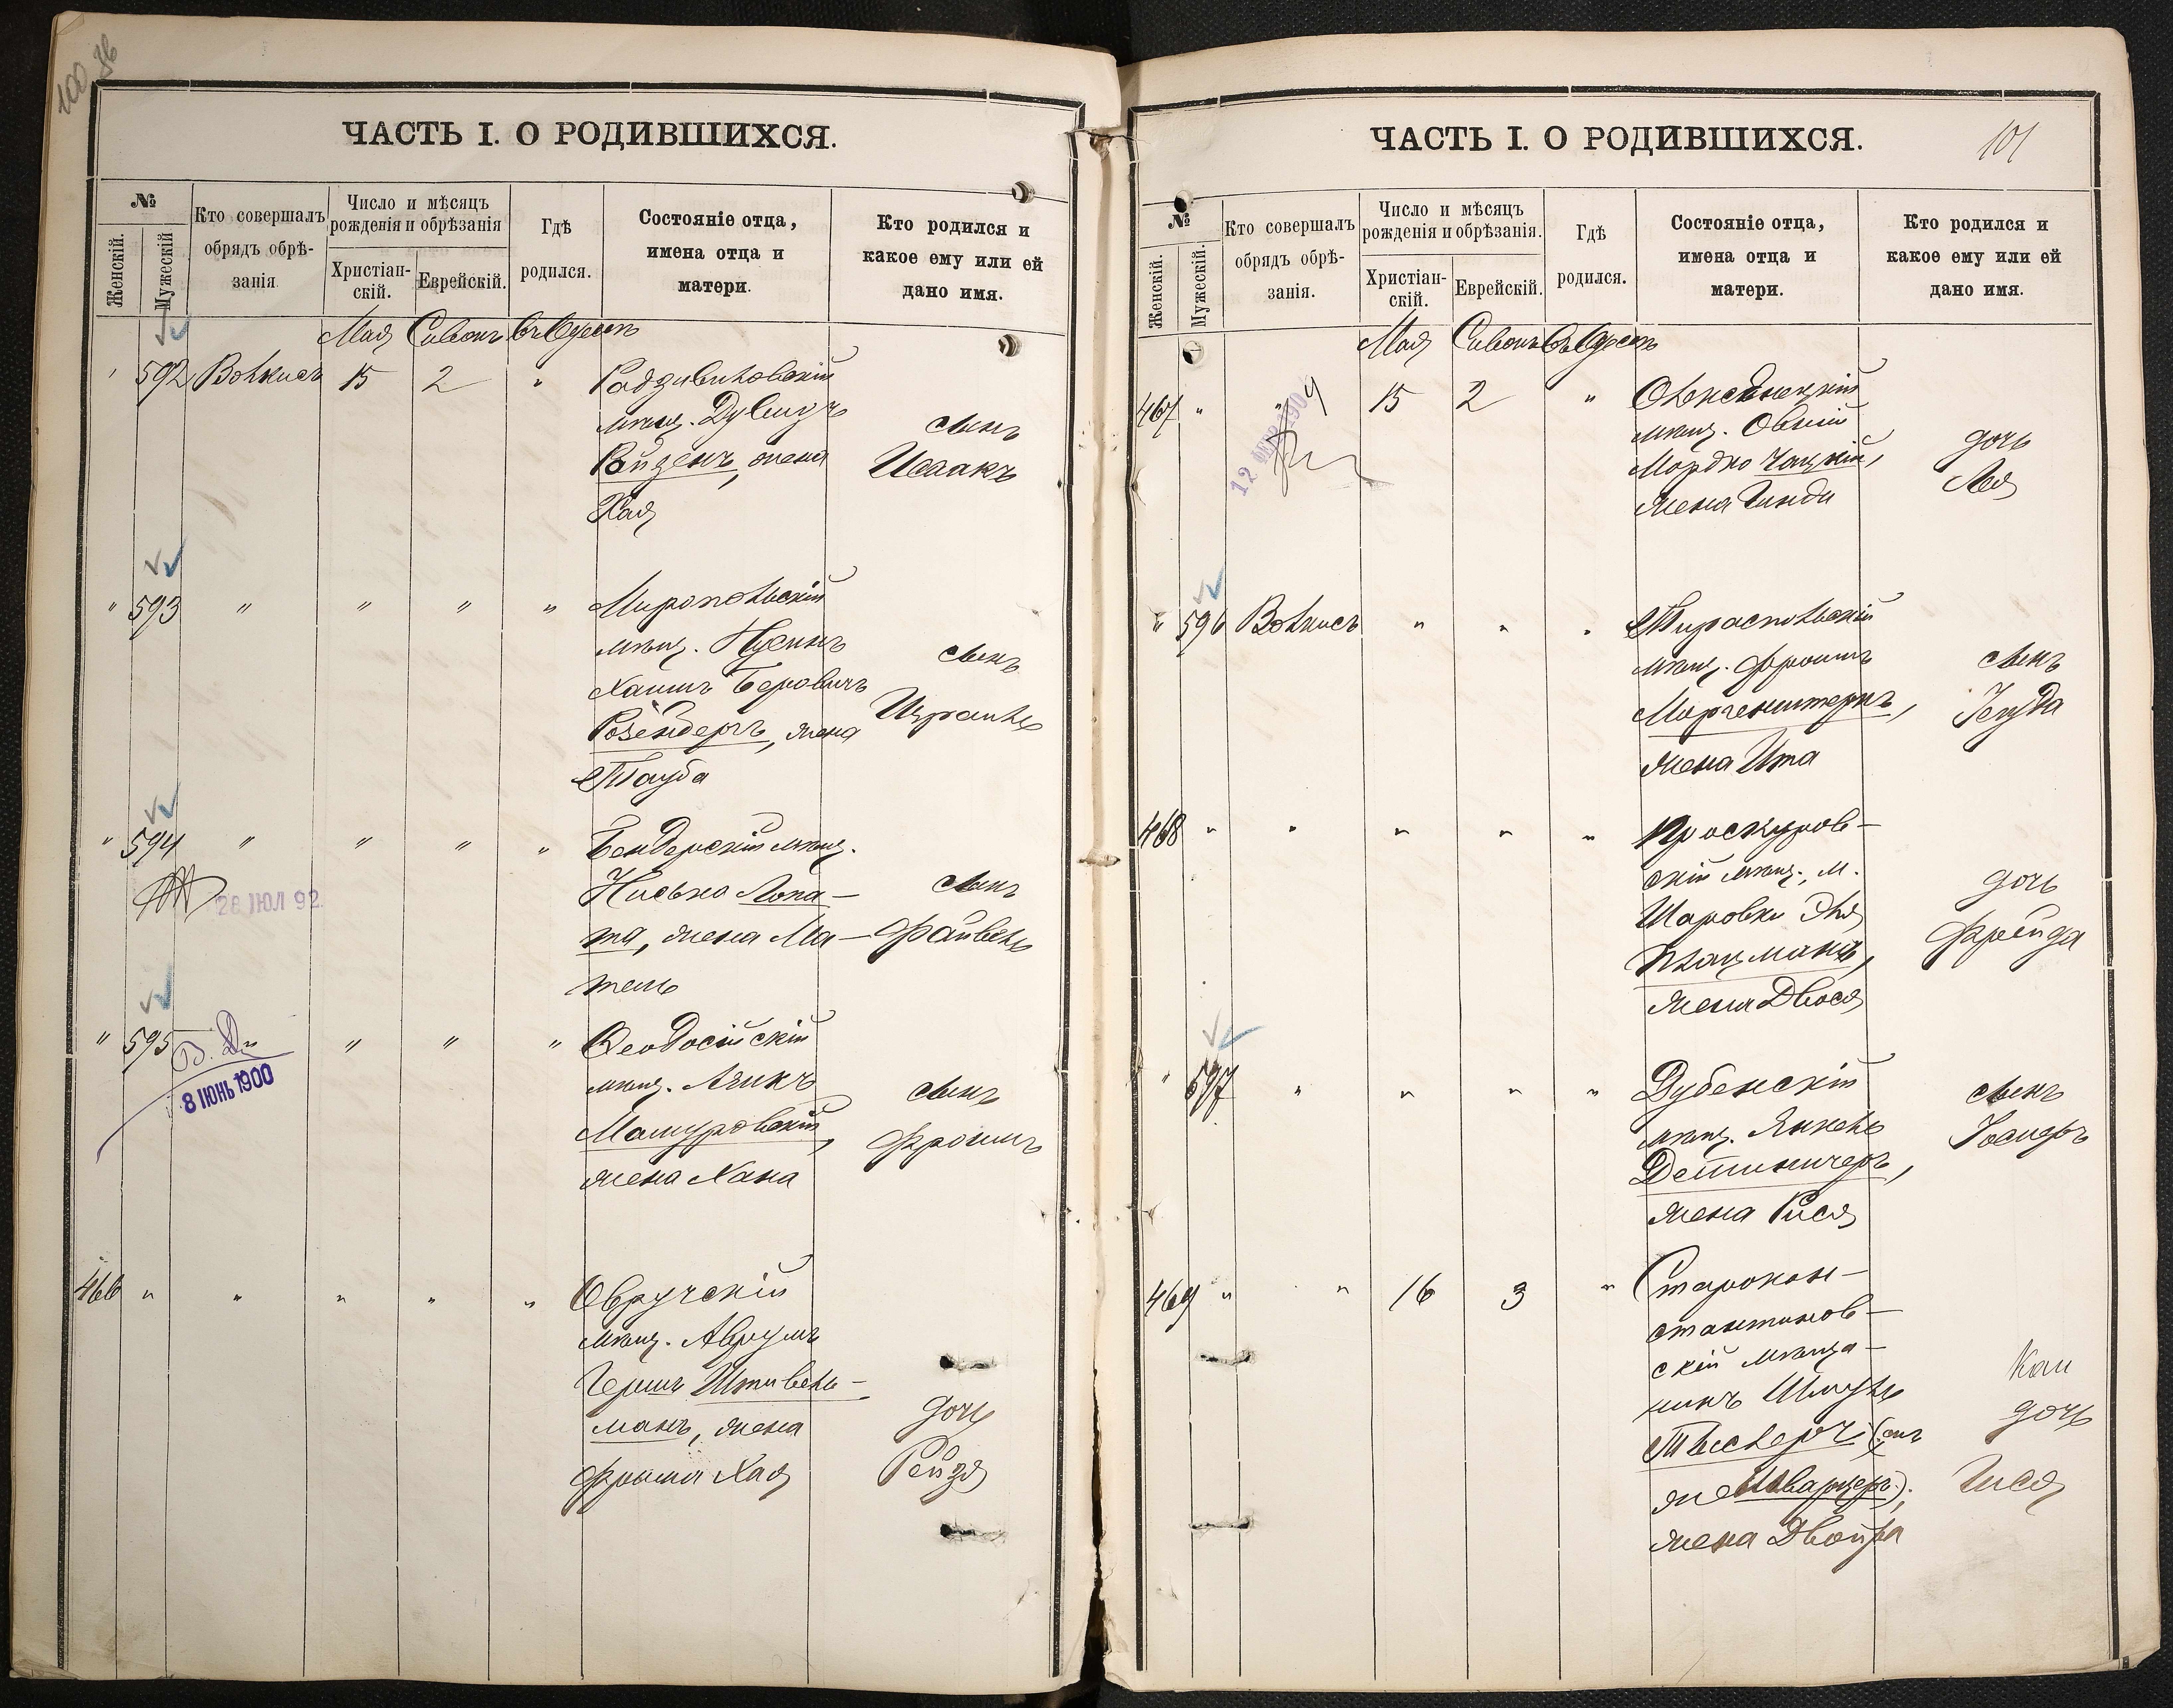 100
ЧАСТЬ I. О РОДИВШИХСЯ.
№
Женскій.
Мужескій
Кто совершалъ
обрядъ обрѣ-
занія.
Число и мѣсяцъ
рожденія и обрѣзанія
Христіан-
скій.
Еврейскій.
Гдѣ
родился.
Состояніе отца,
имена отца и
матери.
Кто родился и
какое ему или ей
дано имя.
Мая Сивонъ въ Одессѣ
592 Волкисъ 15 2 "
Радзивиловскій
мѣщ. Дувидъ
Ройзенъ, жена
Хая
сынъ
Исаакъ
" 593 " " " "
Миропольскій
мѣщ. Нусинъ
Хаимъ Беровичъ
Розенбергъ, жена
Тауба
сынъ
Израиль
" 594 " " " "
28 ІЮЛ 92
Бендерскій мѣщ.
Нисьма Лопа-
та, жена Ма-
тель
сынъ
Файвель
" 595 " " "
8 ІЮНЬ 1900
Ѳеодосійскій
мѣщ. Айзикъ
Мошуровскій,
жена Хана
сынъ
Фроимъ
466 " " " " "
Овручскій
мѣщ. Аврумъ
Гершъ Штивель-
манъ, жена
Фрыма Хая
дочь
Рейзя
ЧАСТЬ I. О РОДИВШИХСЯ.
101
№
Женскій.
Мужескій.
Кто совершалъ
обрядъ обрѣ-
занія.
Число и мѣсяцъ
рожденія и обрѣзанія.
Христіан-
скій.
Еврейскій.
Гдѣ
родился.
Состояніе отца,
имена отца и
матери.
Кто родился и
какое ему или ей
дано имя.
Мая Сивонъ въ Одессѣ
467 " " 15 2 "
12 ФЕВ 190
мѣщ. Овшій
Мордко Чацкій,
жена Гинда
дочь
Лея
" 596 Волкисъ " " "
Тираспольскій
мѣщ. Фроимъ
Моргенштернъ,
жена Ита
сынъ
Іегуда
468 " " " " "
Проскуров-
скій мѣщ., м.
Шаровки Эля
Клацманъ,
жена Двося
дочь
Фрейда
" 597 " " " "
Дубенскій
мѣщ. Янкель
Детиничеръ,
жена Рися
сынъ
Іосифъ
469 " " 16 3 "
Старокон-
стантинов-
скій мѣща-
нинъ Шмуль
(онъ
же Шварцеръ),
жена Двойра
дочь
Гися